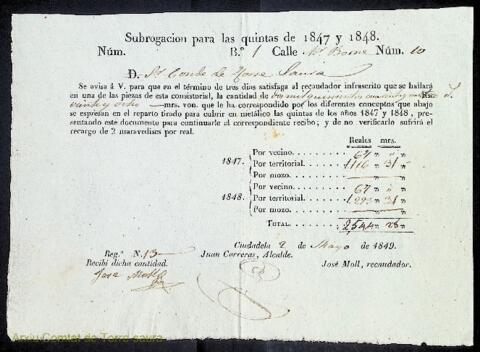 Subrogacion para las quintas de 1847 y 1848.
Núm. B.º 1 Calle Mr Borne Núm. 10
D. Sr Conde de Torre Saura
Se avisa á V. para que en el término de tres dias satisfaga al recaudador infrascrito que se hallará
en una de las piezas de este consistorial, la cantidad de dos mil quinientos cuarenta y
veinte y ocho mrs. von. que le ha correspondido por los diferentes conceptos que abajo
se espresan en el reparto tirado para cubrir en metálico las quintas de los años 1847 y 1848, pre-
sentando este documento para continuarle el correspondiente recibo; y de no verificarlo sufrirá el
recargo de 2 maravedises por real.
Reales mrs.
1847. Por vecino. 67 " "
Por territorial. 1,116 " 31 "
Por mozo. " "
1848. Por vecino. 67 " "
Por territorial. 1,293 " 31 "
Por mozo. " "
TOTAL. 2544 28 "
Ciudadela 2 de Mayo de 1849.
Reg.º N. 13
Juan Carreras, Alcalde.
Recibi dicha cantidad.
José Moll, recaudador.
José Moll
Arxiu Comtat de Torre saura